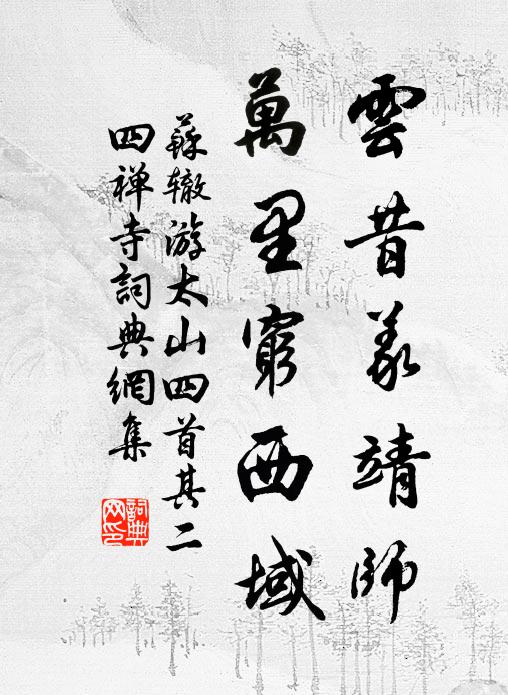 雲昔義靖師
萬里窮西域
蘇轍游太山四首其二
四禅寺詞典網集
詞典
网印